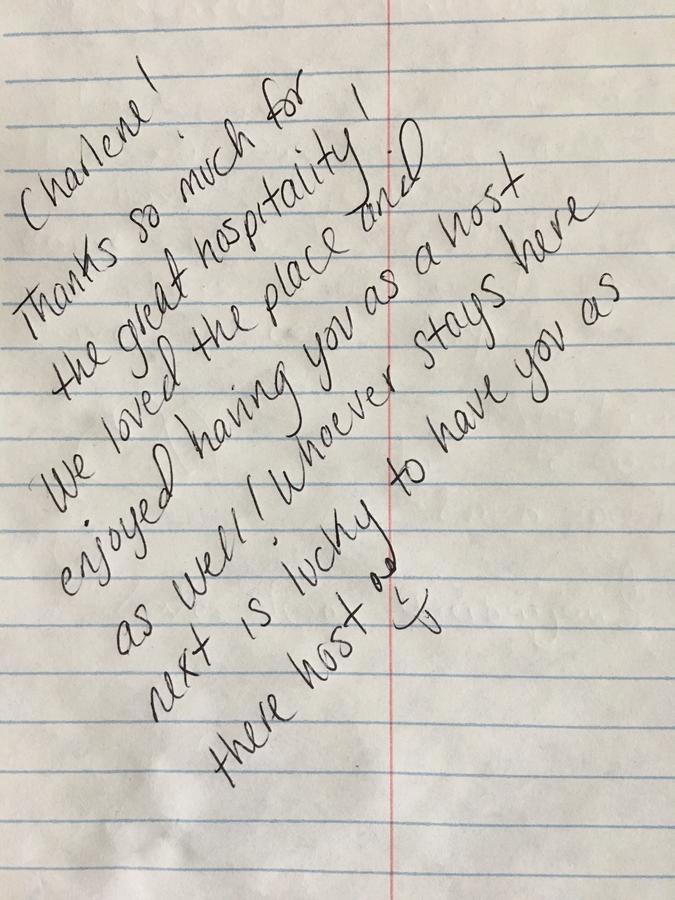 Charlene!
Thanks so much for
the great hospitality!
We loved the place and
enjoyed having you as a host
as well! Whoever stays here
next is lucky to have you as
there host